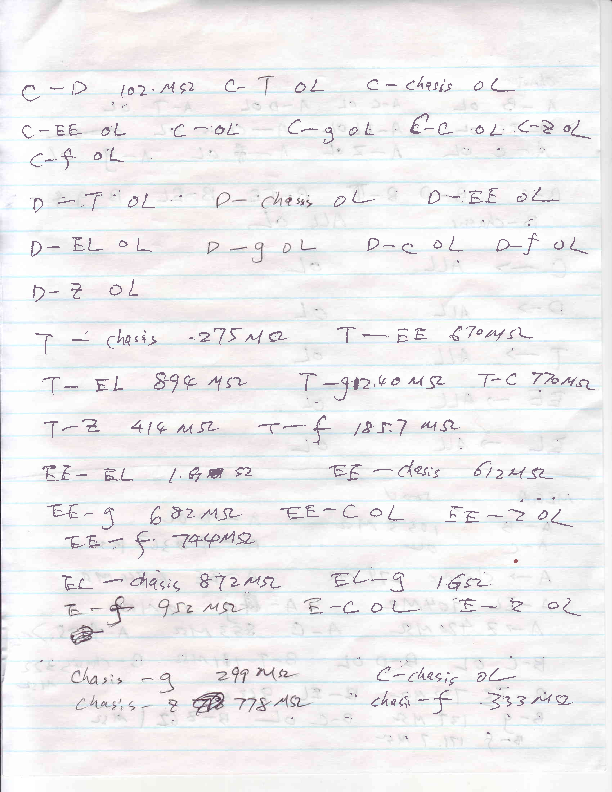 C-D 102.MΩ C-T OL C-chasis OL
C-EE OL C-OL C-g OL C-C OL C-Z OL
C-f OL
D-T OL D-chasis OL D-EE OL
D-EL OL D-g OL D-C OL D-f OL
D-Z OL
T-chasis .275MΩ T-EE 670MΩ
T-EL 894 MΩ T-g 12.40 MΩ T-C 770MΩ
T-Z 414 MΩ T-f 185.7 MΩ
EE-EL 1.G Ω EE-chasis 612MΩ
EE-g 682MΩ EE-C OL EE-Z OL
EE-f 744MΩ
EL-chasis 872MΩ EL-g 1GΩ
E-f 952 MΩ E-C OL E-Z OL
Chasis-g 299 MΩ C-chasis OL
Chasis-Z 778MΩ chasis-f .333MΩ